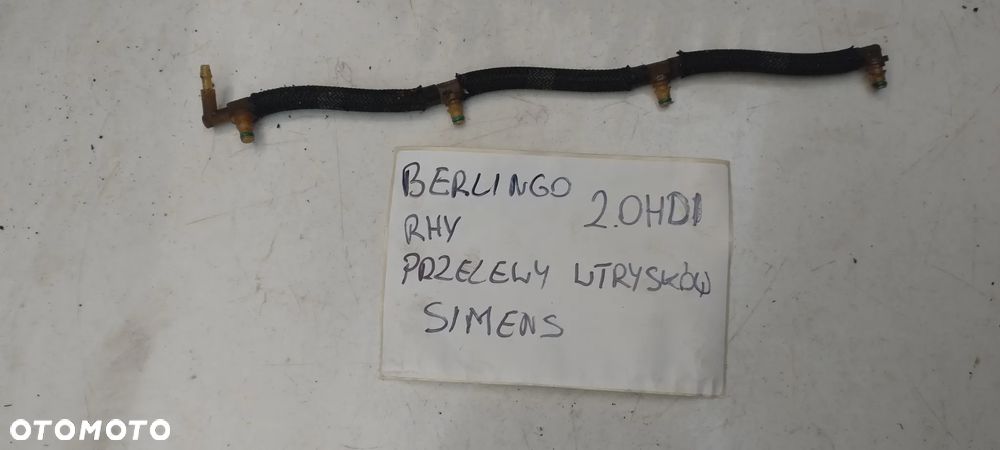 BERLINGO 2.0HDI
RHY
PRZELEWY WTRYSKÓW
SIMENS
OTOMOTO